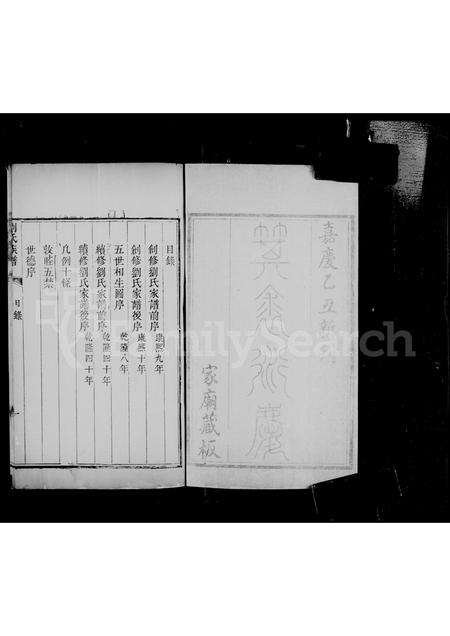 嘉慶乙丑新
家廟藏板
目錄
創修劉氏家譜前序 康熙九年
創修劉氏家譜後序 康熙十年
五世相生圖序 乾隆八年
續修劉氏家譜前序 乾隆四十年
續修劉氏家譜後序 乾隆四十年
凡例十條
敦睦五禁
世德序
劉氏族譜
目錄
FamilySearch